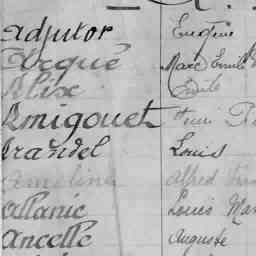 Adjutor Eugène
Arqué Marc Emile
Alix Emile
Amigouet Henri
Arandel Louis
Ameline Alfred
Allanic Louis
Ancelle Auguste